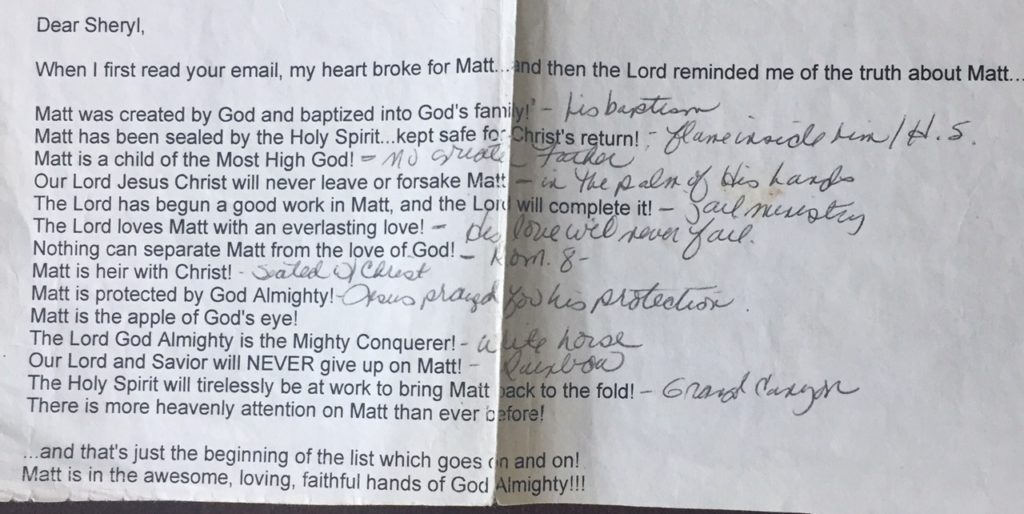 Dear Sheryl,
When I first read your email, my heart broke for Matt...and then the Lord reminded me of the truth about Matt...
Matt was created by God and baptized into God's family! - his baptism
Matt has been sealed by the Holy Spirit...kept safe for Christ's return! - flame inside him / H.S.
Matt is a child of the Most High God! - no greater Father
Our Lord Jesus Christ will never leave or forsake Matt - in the palm of His hands
The Lord has begun a good work in Matt, and the Lord will complete it! - Jail ministry
The Lord loves Matt with an everlasting love! - His love will never fail.
Nothing can separate Matt from the love of God! - Rom. 8-
Matt is heir with Christ! - seated w/ Christ
Matt is protected by God Almighty! - Jesus prayed for his protection.
Matt is the apple of God's eye!
The Lord God Almighty is the Mighty Conquerer! - white horse
Our Lord and Savior will NEVER give up on Matt! - Rainbow
The Holy Spirit will tirelessly be at work to bring Matt back to the fold! - Grand Canyon
There is more heavenly attention on Matt than ever before!
...and that's just the beginning of the list which goes on and on!
Matt is in the awesome, loving, faithful hands of God Almighty!!!